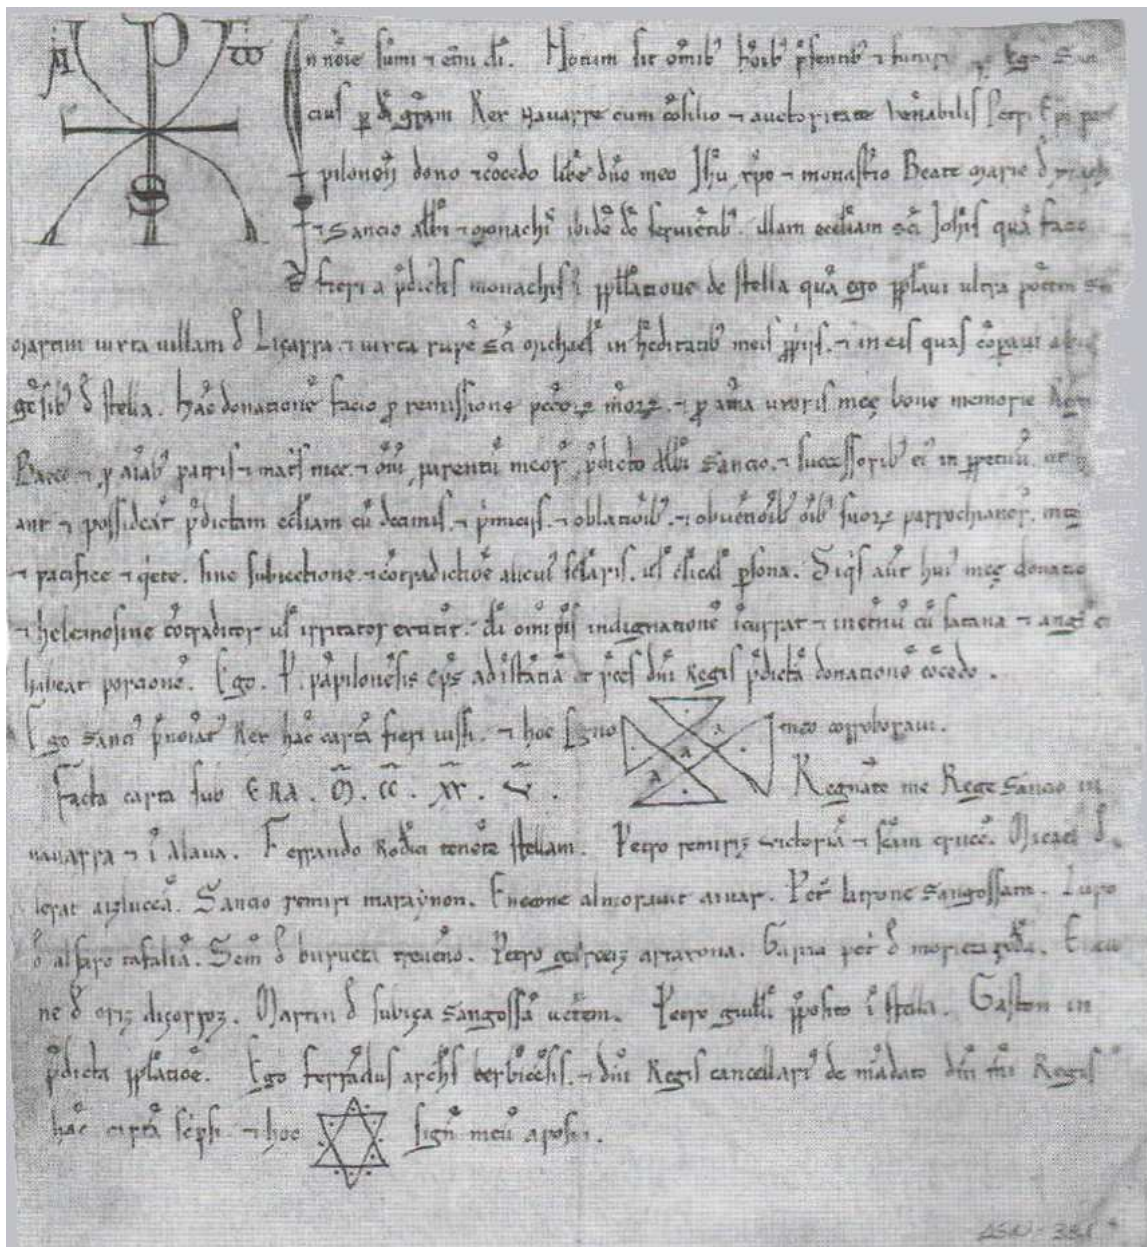 In nõie sumi ⁊ etni di. Notum sit omib' hoib' p̃sentib' ⁊ futuris Ego San
cius p di gram Rex Navarre cum cõsilio ⁊ auctoritate venabilis Petri Ep̃i pam
pilonen dono ⁊ cõcedo libe dño meo Jhu xpo ⁊ monastio Beate Marie d̃
⁊ Sancio abbi ⁊ monachis ibidẽ dõ servientib'. illam eccliam Sc̃i Johis quã facio
fieri a p̃dictis monachis ĩ pp̃latione de stella quã ego pp̃lavi ultra põtem Sc̃i
Martini iuxta villam d̃ Liçarra. ⁊ iuxta rupẽ Sc̃i Michael' in hẽditatib' meis pp̃iis. ⁊ in eis quas cõparavi
d̃ stella. hãc donationẽ facio p remissione pcc̃orꝝ mõrꝝ. ⁊ p aĩma uxoris meę bone memorie
⁊ p aĩab' patris ⁊ mat̃s mee. ⁊ oĩm parentũ meor. p̃dicto abbi Sancio. ⁊ successorib' ei' in ppetuũ. ut
⁊ possideãt p̃dictam ecc̃liam cũ decimis. ⁊ p̃miciis. ⁊ oblatiõib'. ⁊ obventiõib' oĩb' suorꝝ parrochianor.
⁊ pacifice ⁊ q̃ete. sine subiectione. ⁊ cõtradictiõe alicui' sc̃laris. ul' cl̃icał p̃sona. Siq̃s aũt hui' meę donatio
⁊ helemosine cõtraditor ul' irritator extiterit. di omipt̃is indignationẽ ĩcurrat ⁊ in etnũ cũ satana ⁊ ang̃l ei'
habeat porcionẽ. Ego. P. pãpilonẽsis ep̃s ad istãtiã et p̃ces dñi Regis p̃dictã donationẽ cõcedo.
Ego Sanci' p̃noiat' Rex hãc cartã fieri iussi. ⁊ hoc signo meo corroboravi.
A A A
Facta carta sub ERA. M̃. C̃C. X̃X. Ṽ. Regnãte me Rege Sancio in
navarra ⁊ ĩ Alava. Ferrando Rodici tenẽte stellam. Petro remiriz victoriã ⁊ sc̃am crucẽ. Micael d̃
lerat aizluceã. Sancio remiri maraynon. Enecone almoravit aivar. Pet̃ latrone Sangossam. Lupo
d̃ alfaro tafaliã. Sem̃ d̃ burueta trevẽno. Petro garceiz artaxona. Garcia pet̃ d̃ morieta Eneco
ne d̃ oriz diçorroz. Martin d̃ subiça Sangossã vetẽrem. Petro guill̃i pp̃osito ĩ stella. Gaston in
p̃dicta pp̃latiõe. Ego ferrãdus archs berbiẽsis. ⁊ dñi Regis cancellari' de mãdato dñi mi Regis
hãc cartã sc̃psi ⁊ hoc signũ meũ aposui.